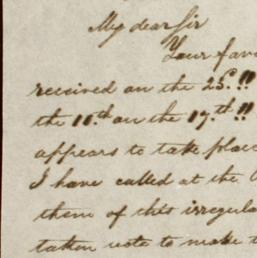 My dear Sir
Your fav
received on the 25th !!
the 11th on the 17th !!
appears to take plac
I have called at the
them of this irregula
taken note to make t